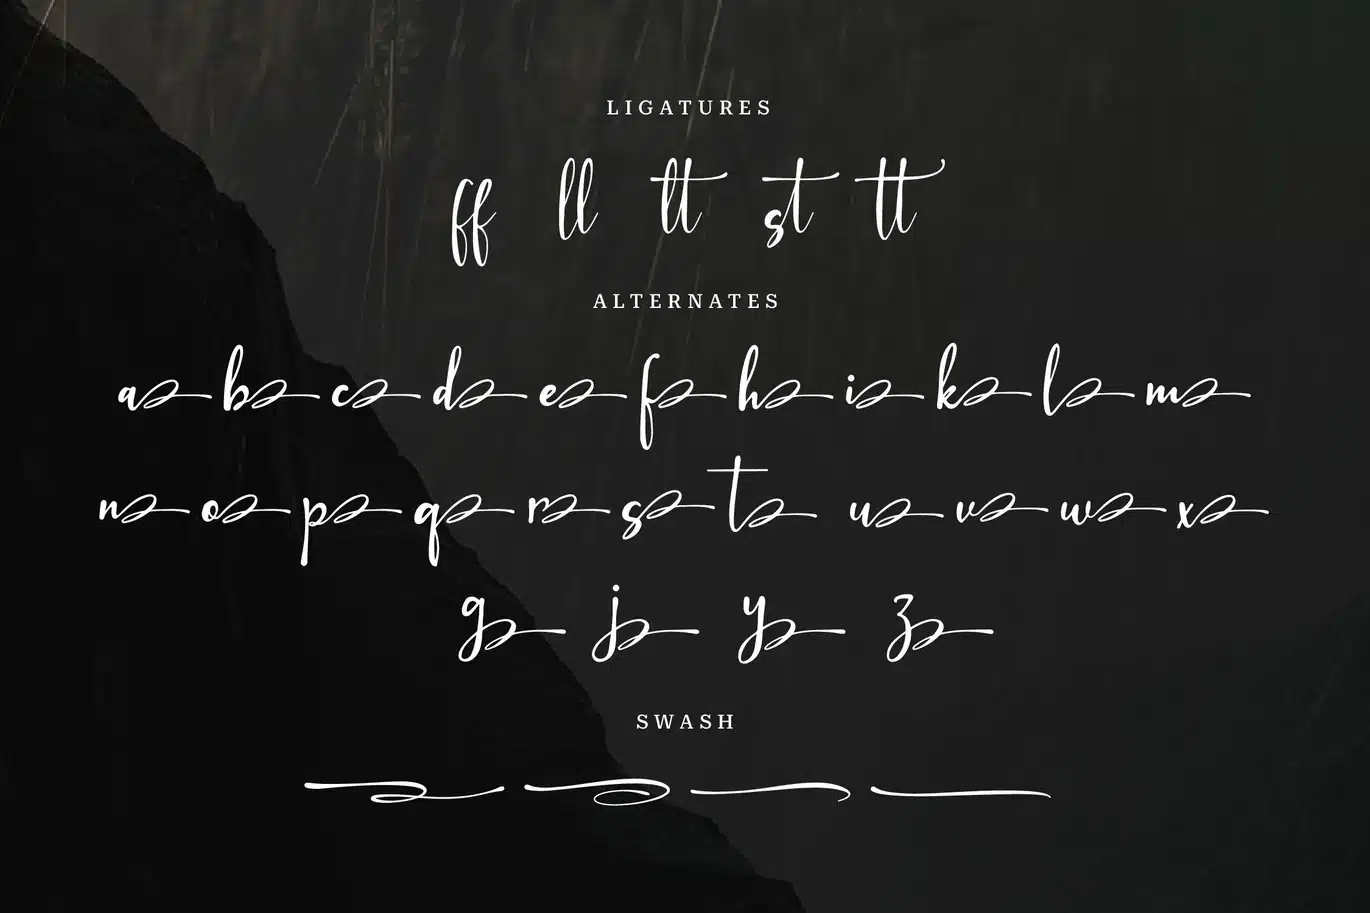 LIGATURES
ff ll lt st tt
ALTERNATES
a b c d e f h i k l m
n o p q r s t u v w x
g j y z
SWASH